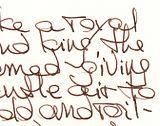 ke a royal
nd give the
med living
entle girl to
ld and roil.